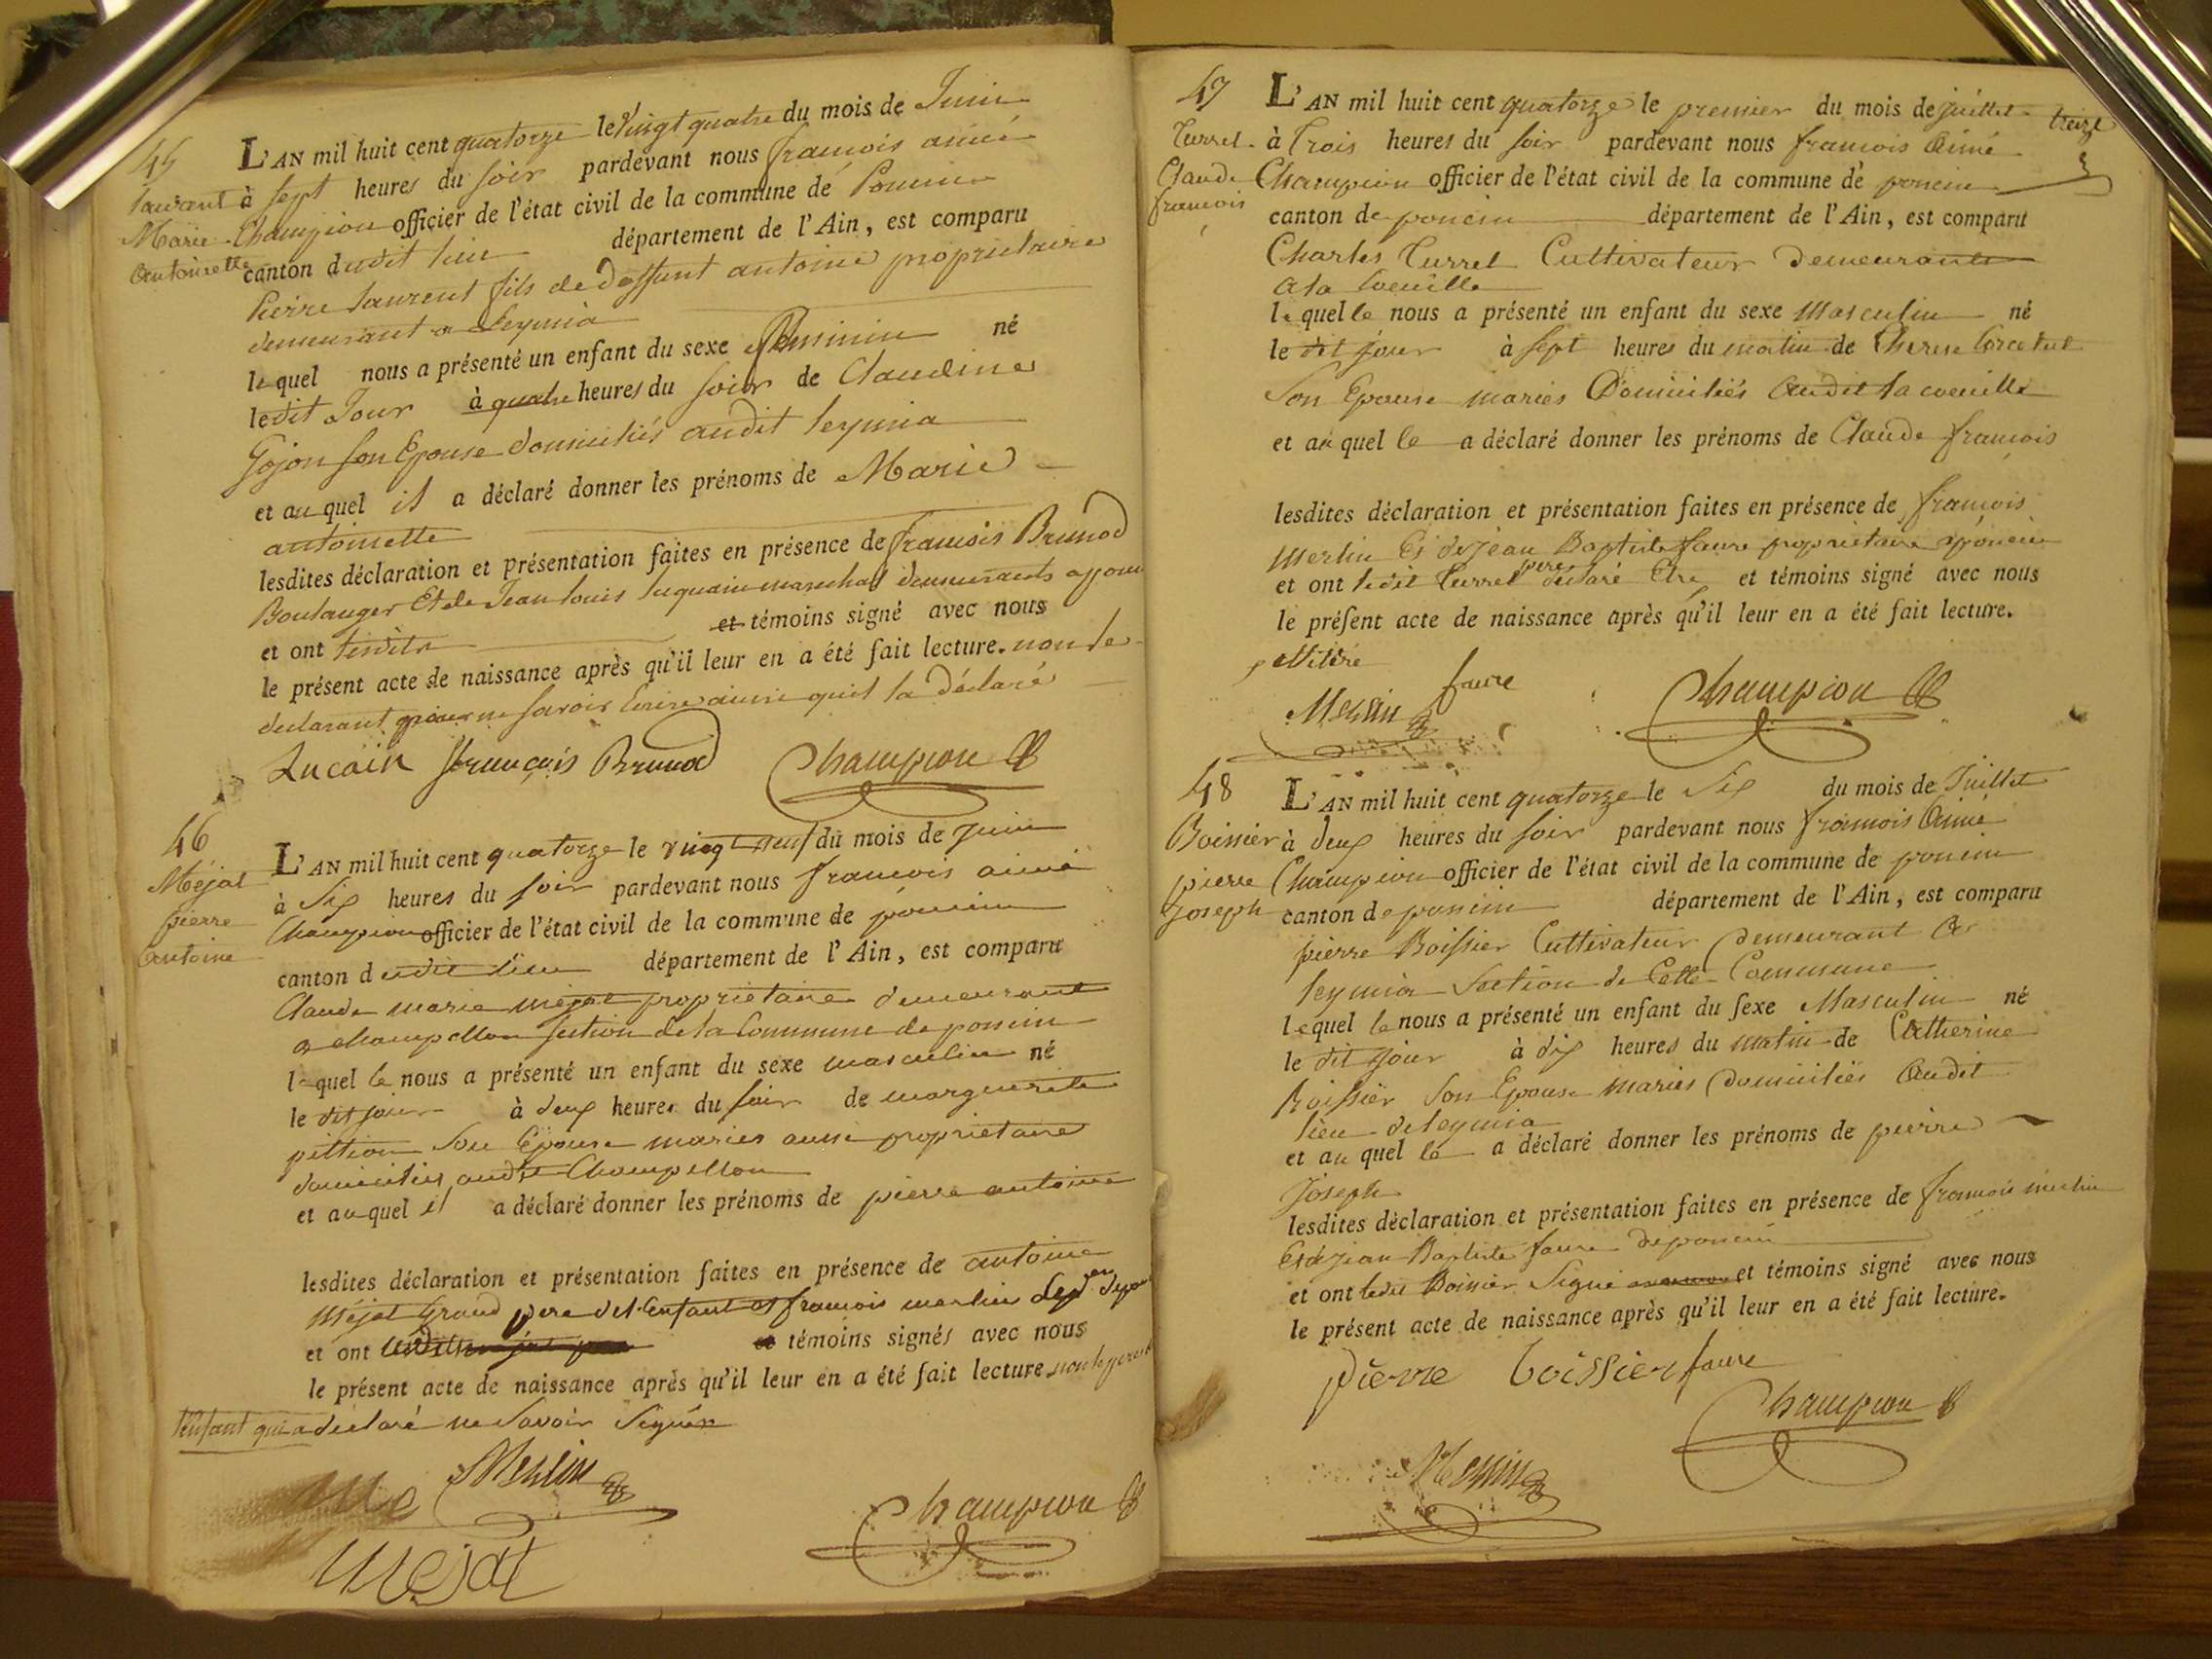 45
Laurant
Marie
antoinette
L'AN mil huit cent quatorze le Vingt quatre du mois de Juin
à sept heures du soir pardevant nous francois aimé
Champion officier de l'état civil de la commune de Poncin
canton dudit lieu département de l'Ain, est comparu
Pierre Laurent fils de deffunt antoine proprietaire
demeurant a Leymia
lequel nous a présenté un enfant du sexe feminin né
ledit Jour à quatre heures du soir de Claudine
Gojon son Epouse domiciliés audit leymia
et auquel il a déclaré donner les prénoms de Marie
antoinette
lesdites déclaration et présentation faites en présence de francois Brunod
Boulanger Et de Jean Louis luquain marechal demeurants a
et ont lesdits et témoins signé avec nous
le présent acte de naissance après qu'il leur en a été fait lecture. non le
declarant pour ne savoir Ecrire ainsi quil la déclaré
Lucain françois Brunod Champion
46
Méjat
pierre
antoine
L'AN mil huit cent quatorze le vingt neuf du mois de juin
à Six heures du soir pardevant nous francois aimé
Champion officier de l'état civil de la commune de poncin
canton dudit lieu département de l'Ain, est comparu
Claude marie méjat proprietaire demeurant
a champellon section de la Commune de poncin
lequel le nous a présenté un enfant du sexe masculin né
le dit jour à deux heures du soir de marguerite
pittion son Epouse mariés aussi proprietaire
domiciliés audit Champellon
et auquel il a déclaré donner les prénoms de pierre antoine
lesdites déclaration et présentation faites en présence de antoine
méjat Grand pere del Enfant et francois merlin
et ont et témoins signés avec nous
le présent acte de naissance après qu'il leur en a été fait lecture non le pere de
l'enfant qui a déclaré ne savoir Signér
Merlin
Mejat Champion
47
Turrel
Claude
francois
L'AN mil huit cent quatorze le premier du mois de juillet treize
à Trois heures du soir pardevant nous francois Aimé
Champion officier de l'état civil de la commune de poncin
canton de poncin département de l'Ain, est comparu
Charles Turrel Cultivateur Demeurant
a la Coeuille
lequel le nous a présenté un enfant du sexe Masculin né
le dit jour à sept heures du matin de Therese
Son Epouse mariés Domiciliés Audit la coeuille
et auquel le a déclaré donner les prénoms de Claude francois
lesdites déclaration et présentation faites en présence de francois
merlin Et de jean Baptiste faure proprietaire a poncin
et ont ledit Turrel pere déclaré Etre et témoins signé avec nous
le présent acte de naissance après qu'il leur en a été fait lecture.
illitéré
Merlin faure Champion
48
Boissier
pierre
Joseph
L'AN mil huit cent quatorze le Six du mois de Juillet
à deux heures du soir pardevant nous francois Aimé
Champion officier de l'état civil de la commune de poncin
canton de poncin département de l'Ain, est comparu
pierre Boissier Cultivateur Demeurant A
leymia Section de Cette Commune
lequel le nous a présenté un enfant du sexe Masculin né
le dit jour à dix heures du matin de Catherine
Boissier Son Epouse mariés Domiciliés Audit
lieu de leymia
et auquel le a déclaré donner les prénoms de pierre
Joseph
lesdites déclaration et présentation faites en présence de francois merlin
Et de jean Baptiste faure de poncin
et ont ledit Boissier Signé et témoins signé avec nous
le présent acte de naissance après qu'il leur en a été fait lecture.
pierre boissier faure
Champion
Merlin